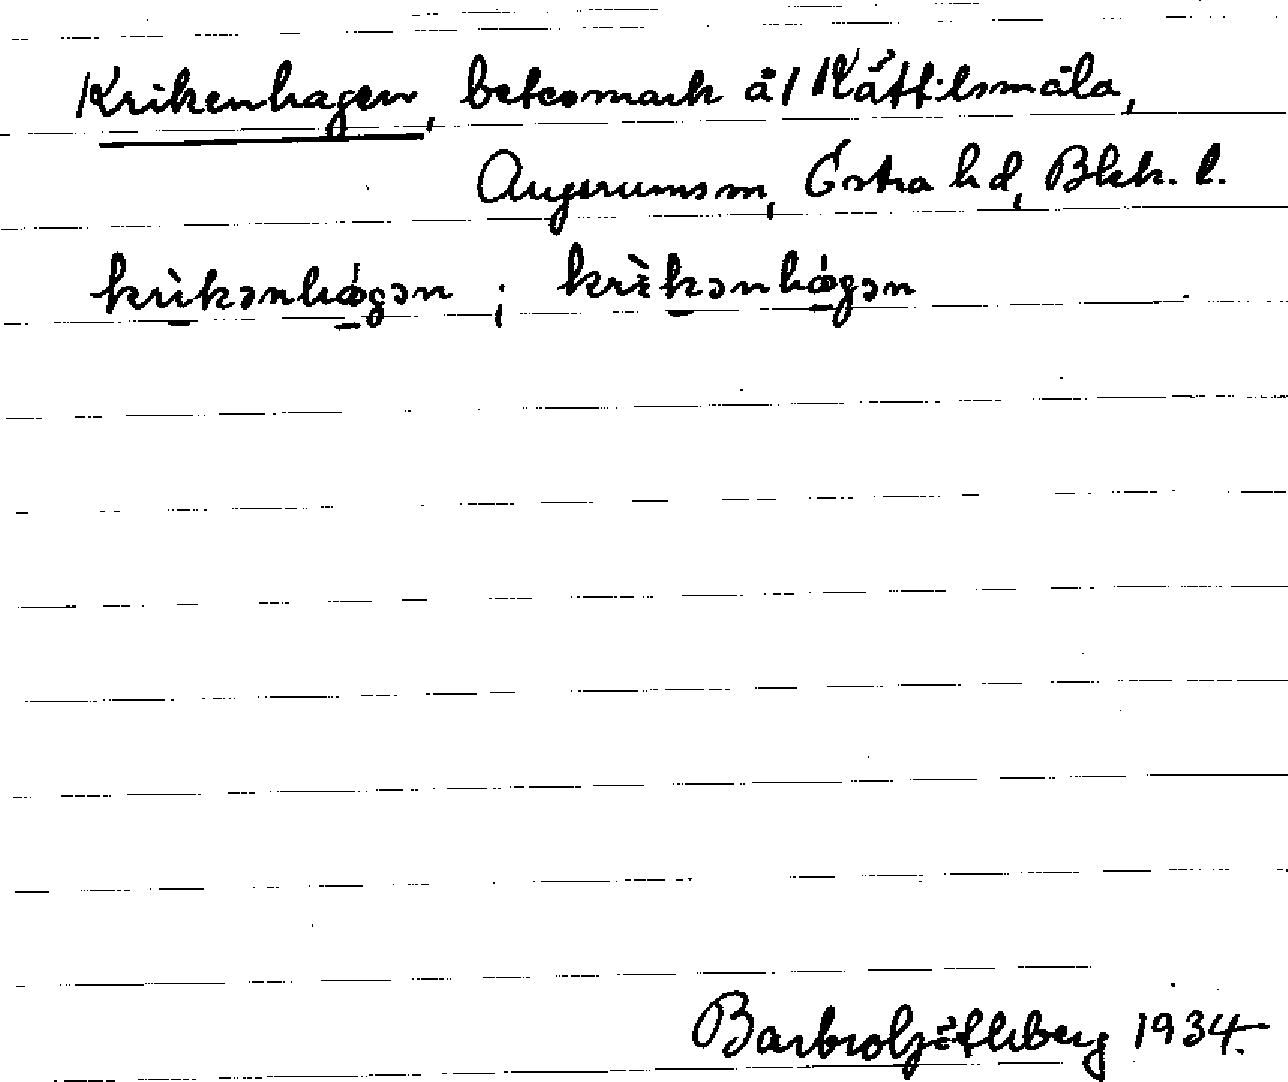 Krikenhagen, betesmark åt Kättilsmåla,
Augerums sn, Östra hd, Blek. l.
krìkənhágən ; krìkənhágən
Barbro Götlberg 1934.